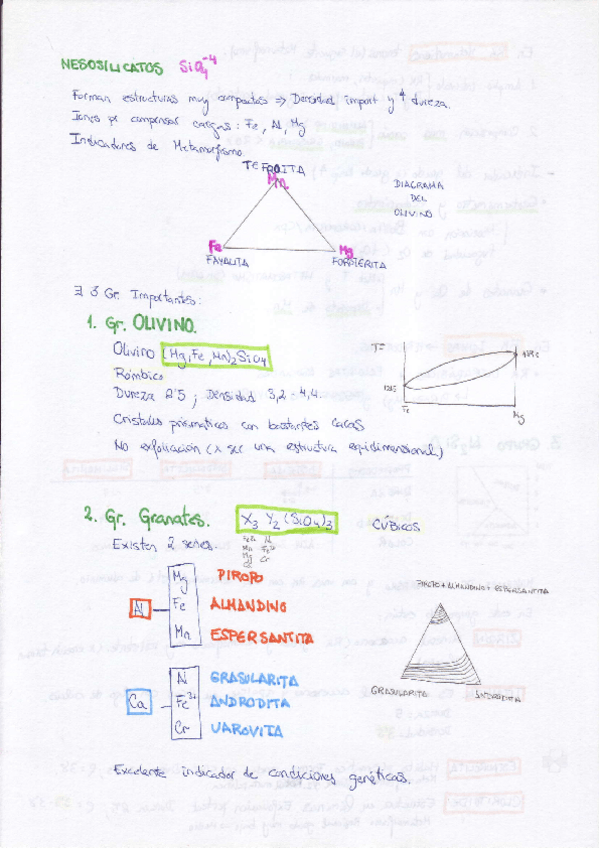 NESOSILICATOS SiO4-4
Forman estructuras muy compactas => Densidad import y ↑ dureza.
Iones pr compensar cargas: Fe, Al, Mg
Indicadores de Metamorfismo.
TEFROITA
Mn
DIAGRAMA
DEL
OLIVINO
Fe
Mg
FAYALITA
FORSTERITA
∃ 3 Gr. Importantes:
1. Gr. OLIVINO.
Olivino (Mg, Fe, Mn)2 SiO4
Rómbico
Dureza 2'5 ; Densidad 3,2 - 4,4.
Cristales prismaticos con bastantes caras
No exfoliación (x ser una estructura equidimensional)
Tª
Fe
Mg
2. Gr. Granates. X3 Y2 (SiO4)3 CÚBICOS
Existen 2 series.
Al
Mg PIROPO
Fe ALMANDINO
Mn ESPERSANTITA
Ca
Al GRASULARITA
Fe3+ ANDRODITA
Cr UAROVITA
PIROPO + ALMANDINO + ESPERSANTITA
GRASULARITA
ANDRODITA
Excelente indicador de condiciones genéticas.